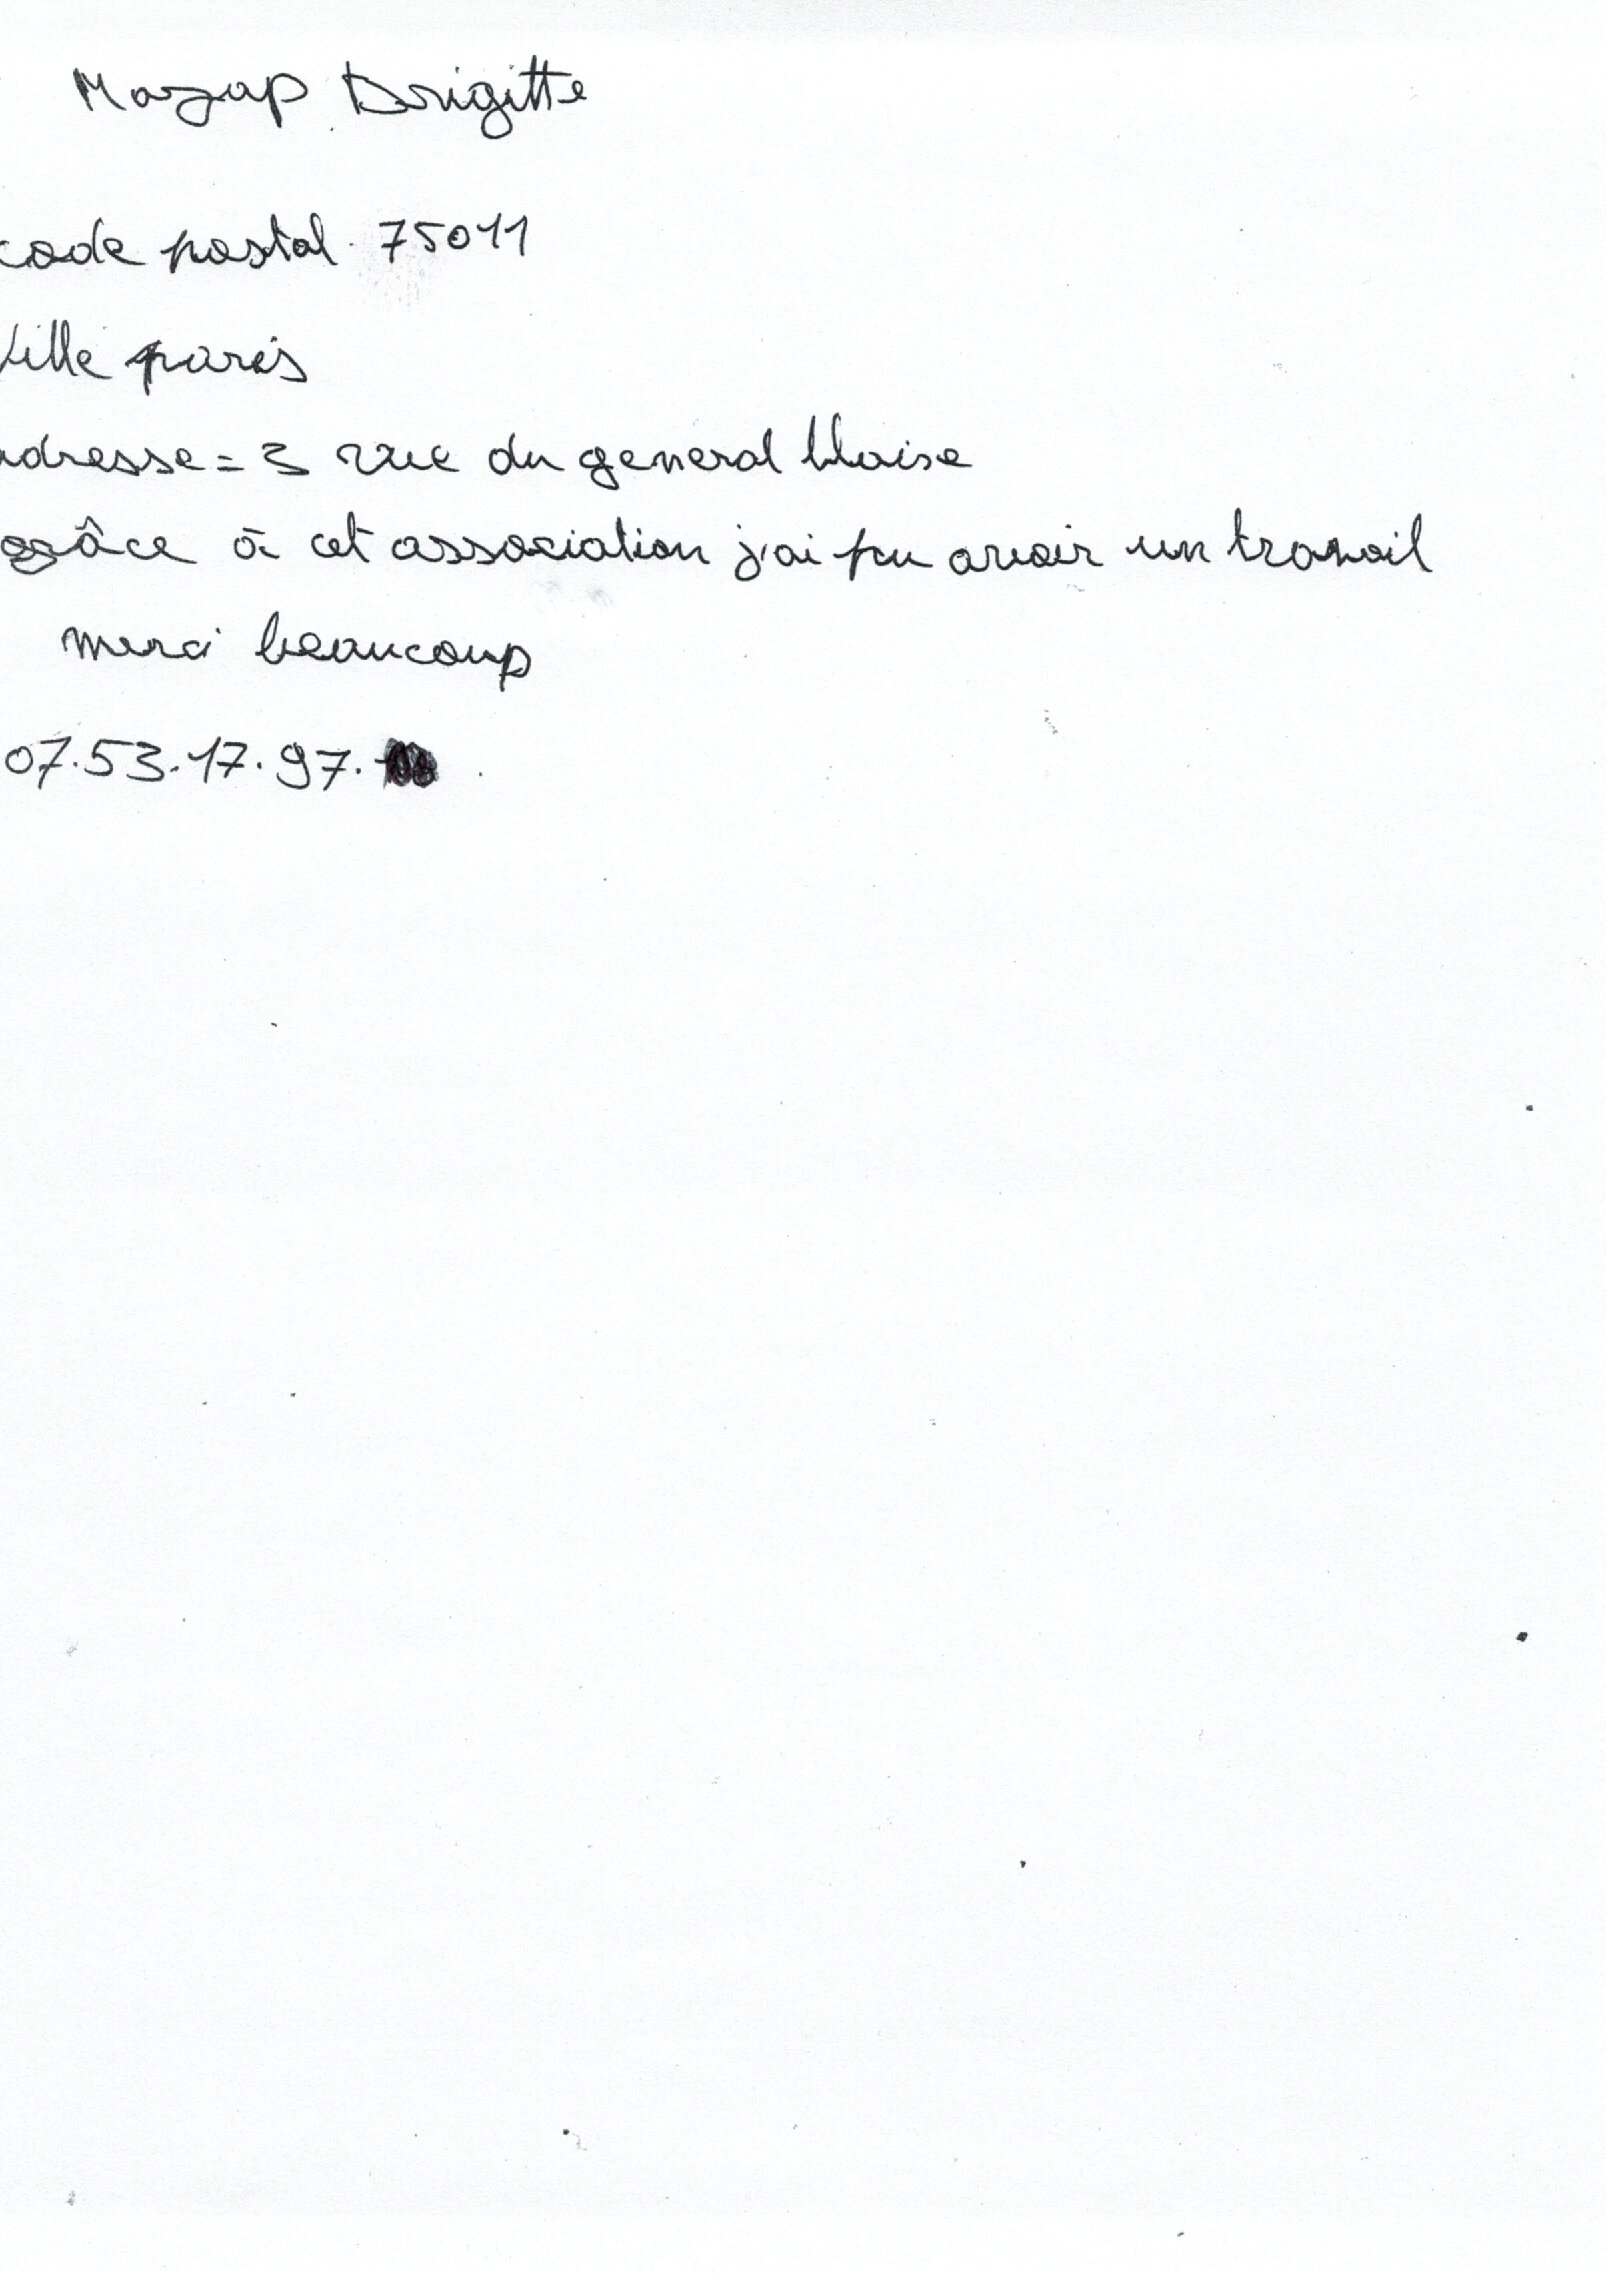 Mazap Brigitte
code postal 75011
Ville paris
adresse = 3 rue du general blaise
grâce à cet association j'ai pu avoir un travail
merci beaucoup
07.53.17.97.